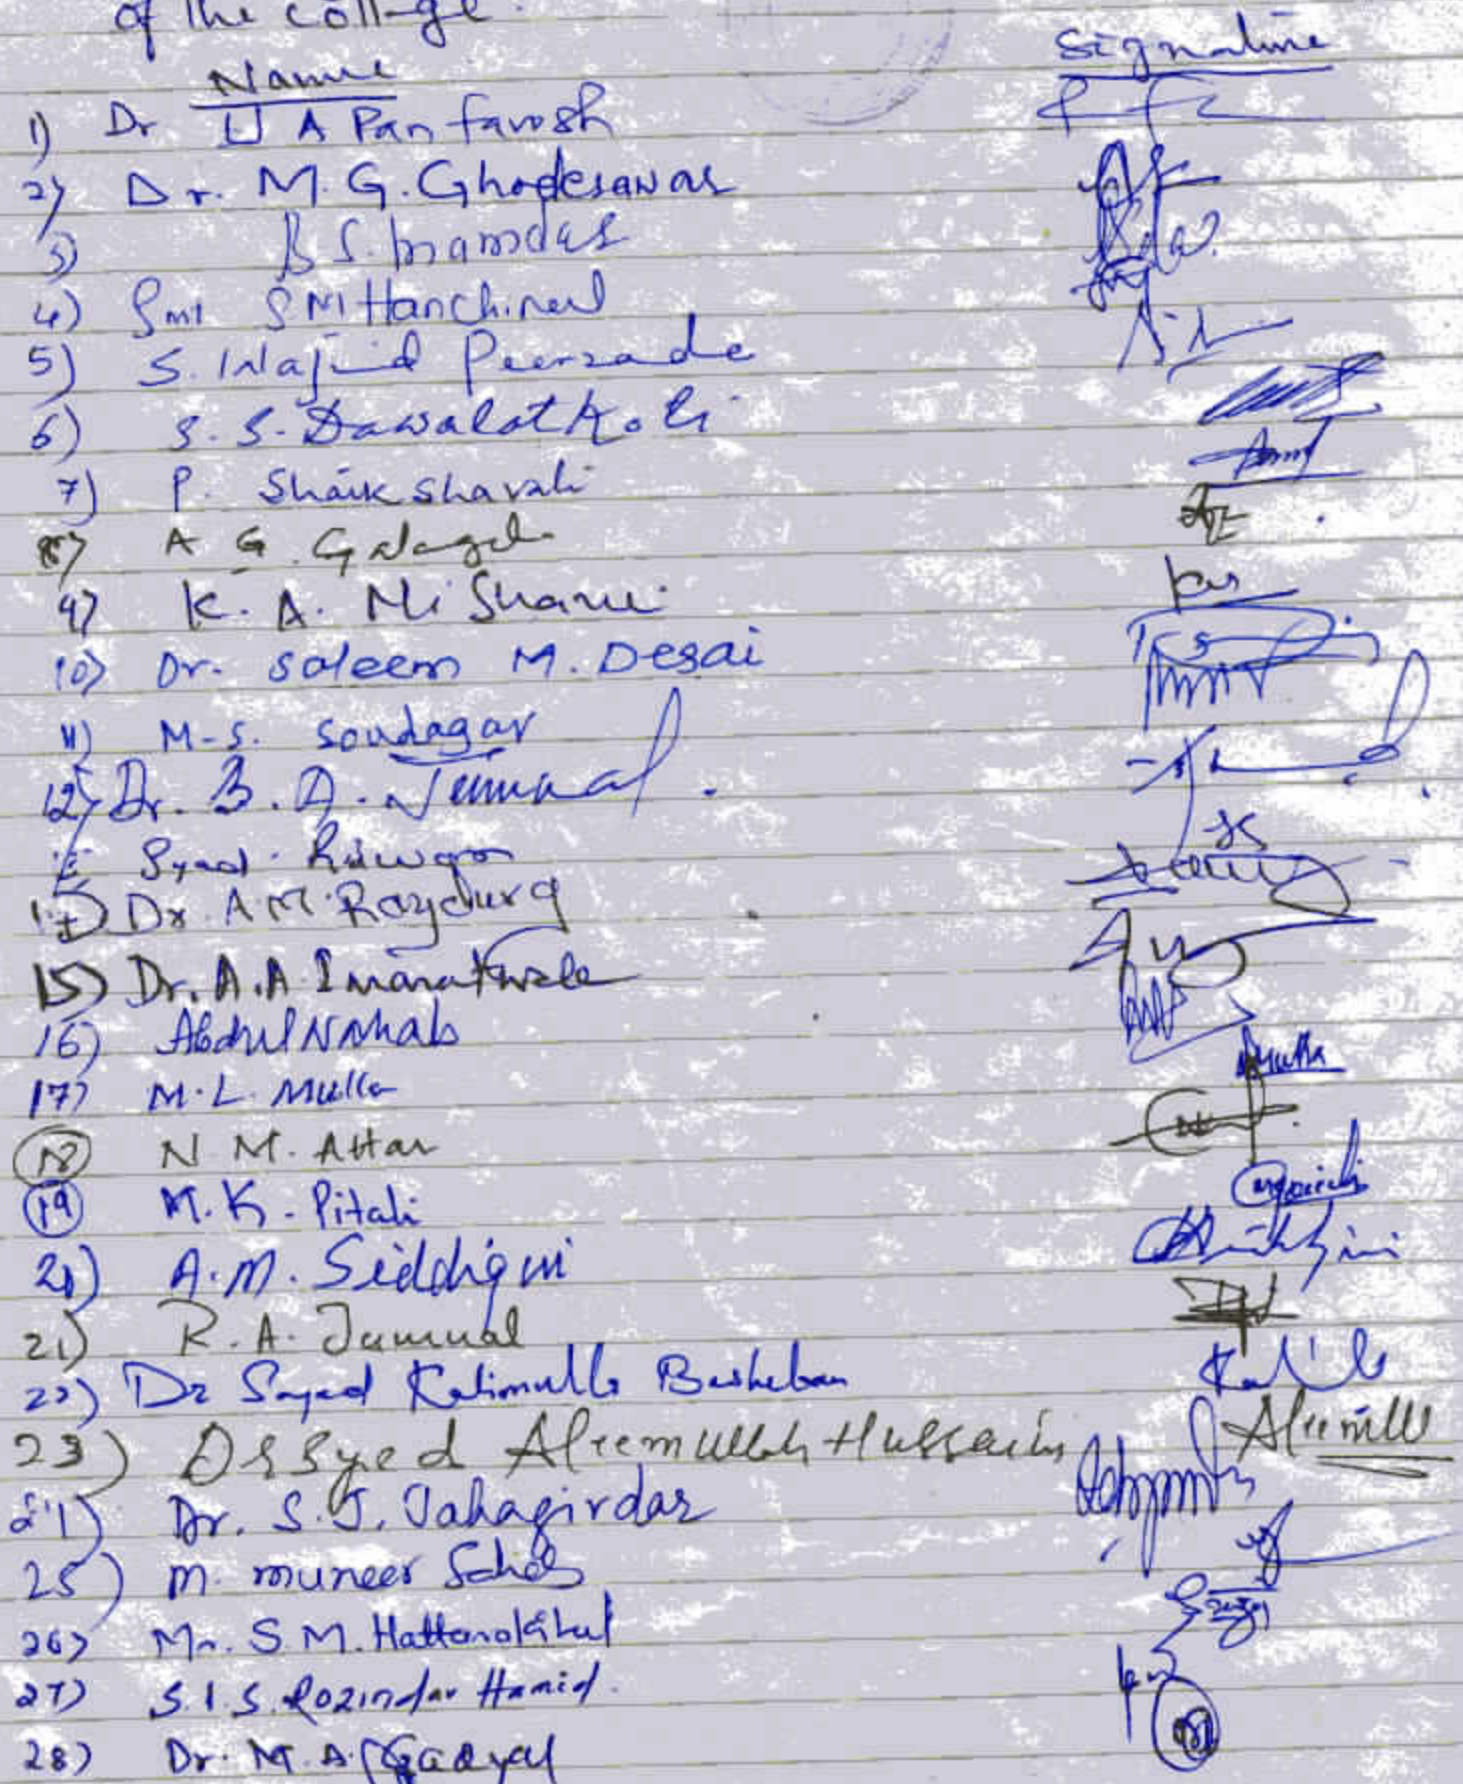 of the college.
Name Signature
1) Dr U A Pan farosh
2) Dr. M. G. Ghodesawar
3) B S. Inamdar
4) Smt S M Hanchinal
5) S. Wajid Peerzade
6) S. S. Dawalatkoti
7) P. Shaik shavali
8) A G. Galagali
9) K. A. Mishani
10) Dr. Saleem M. Desai
11) M-S. Soudagar
12) Dr. B. A. Jummal.
Syed Rizwan
Dr A M Raydurg
15) Dr. A. A Imaratwale
16) Abdul Wahab
17) M. L. Mulla Mulla
18) N. M. Attar
19) M. K. Pitali
20) A. M. Siddiqui
21) R. A. Jummal
22) Dr Sayed Kalimulla Basheban
23) Dr Syed Aleemullah Hussaini Aleemulla
24) Dr. S. J. Jahagirdar
25) M. muneer Saheb
26) Mr. S. M. Hattarakihal
27) S. I. S. Rozindar Hamid.
28) Dr. M. A. Gadyal